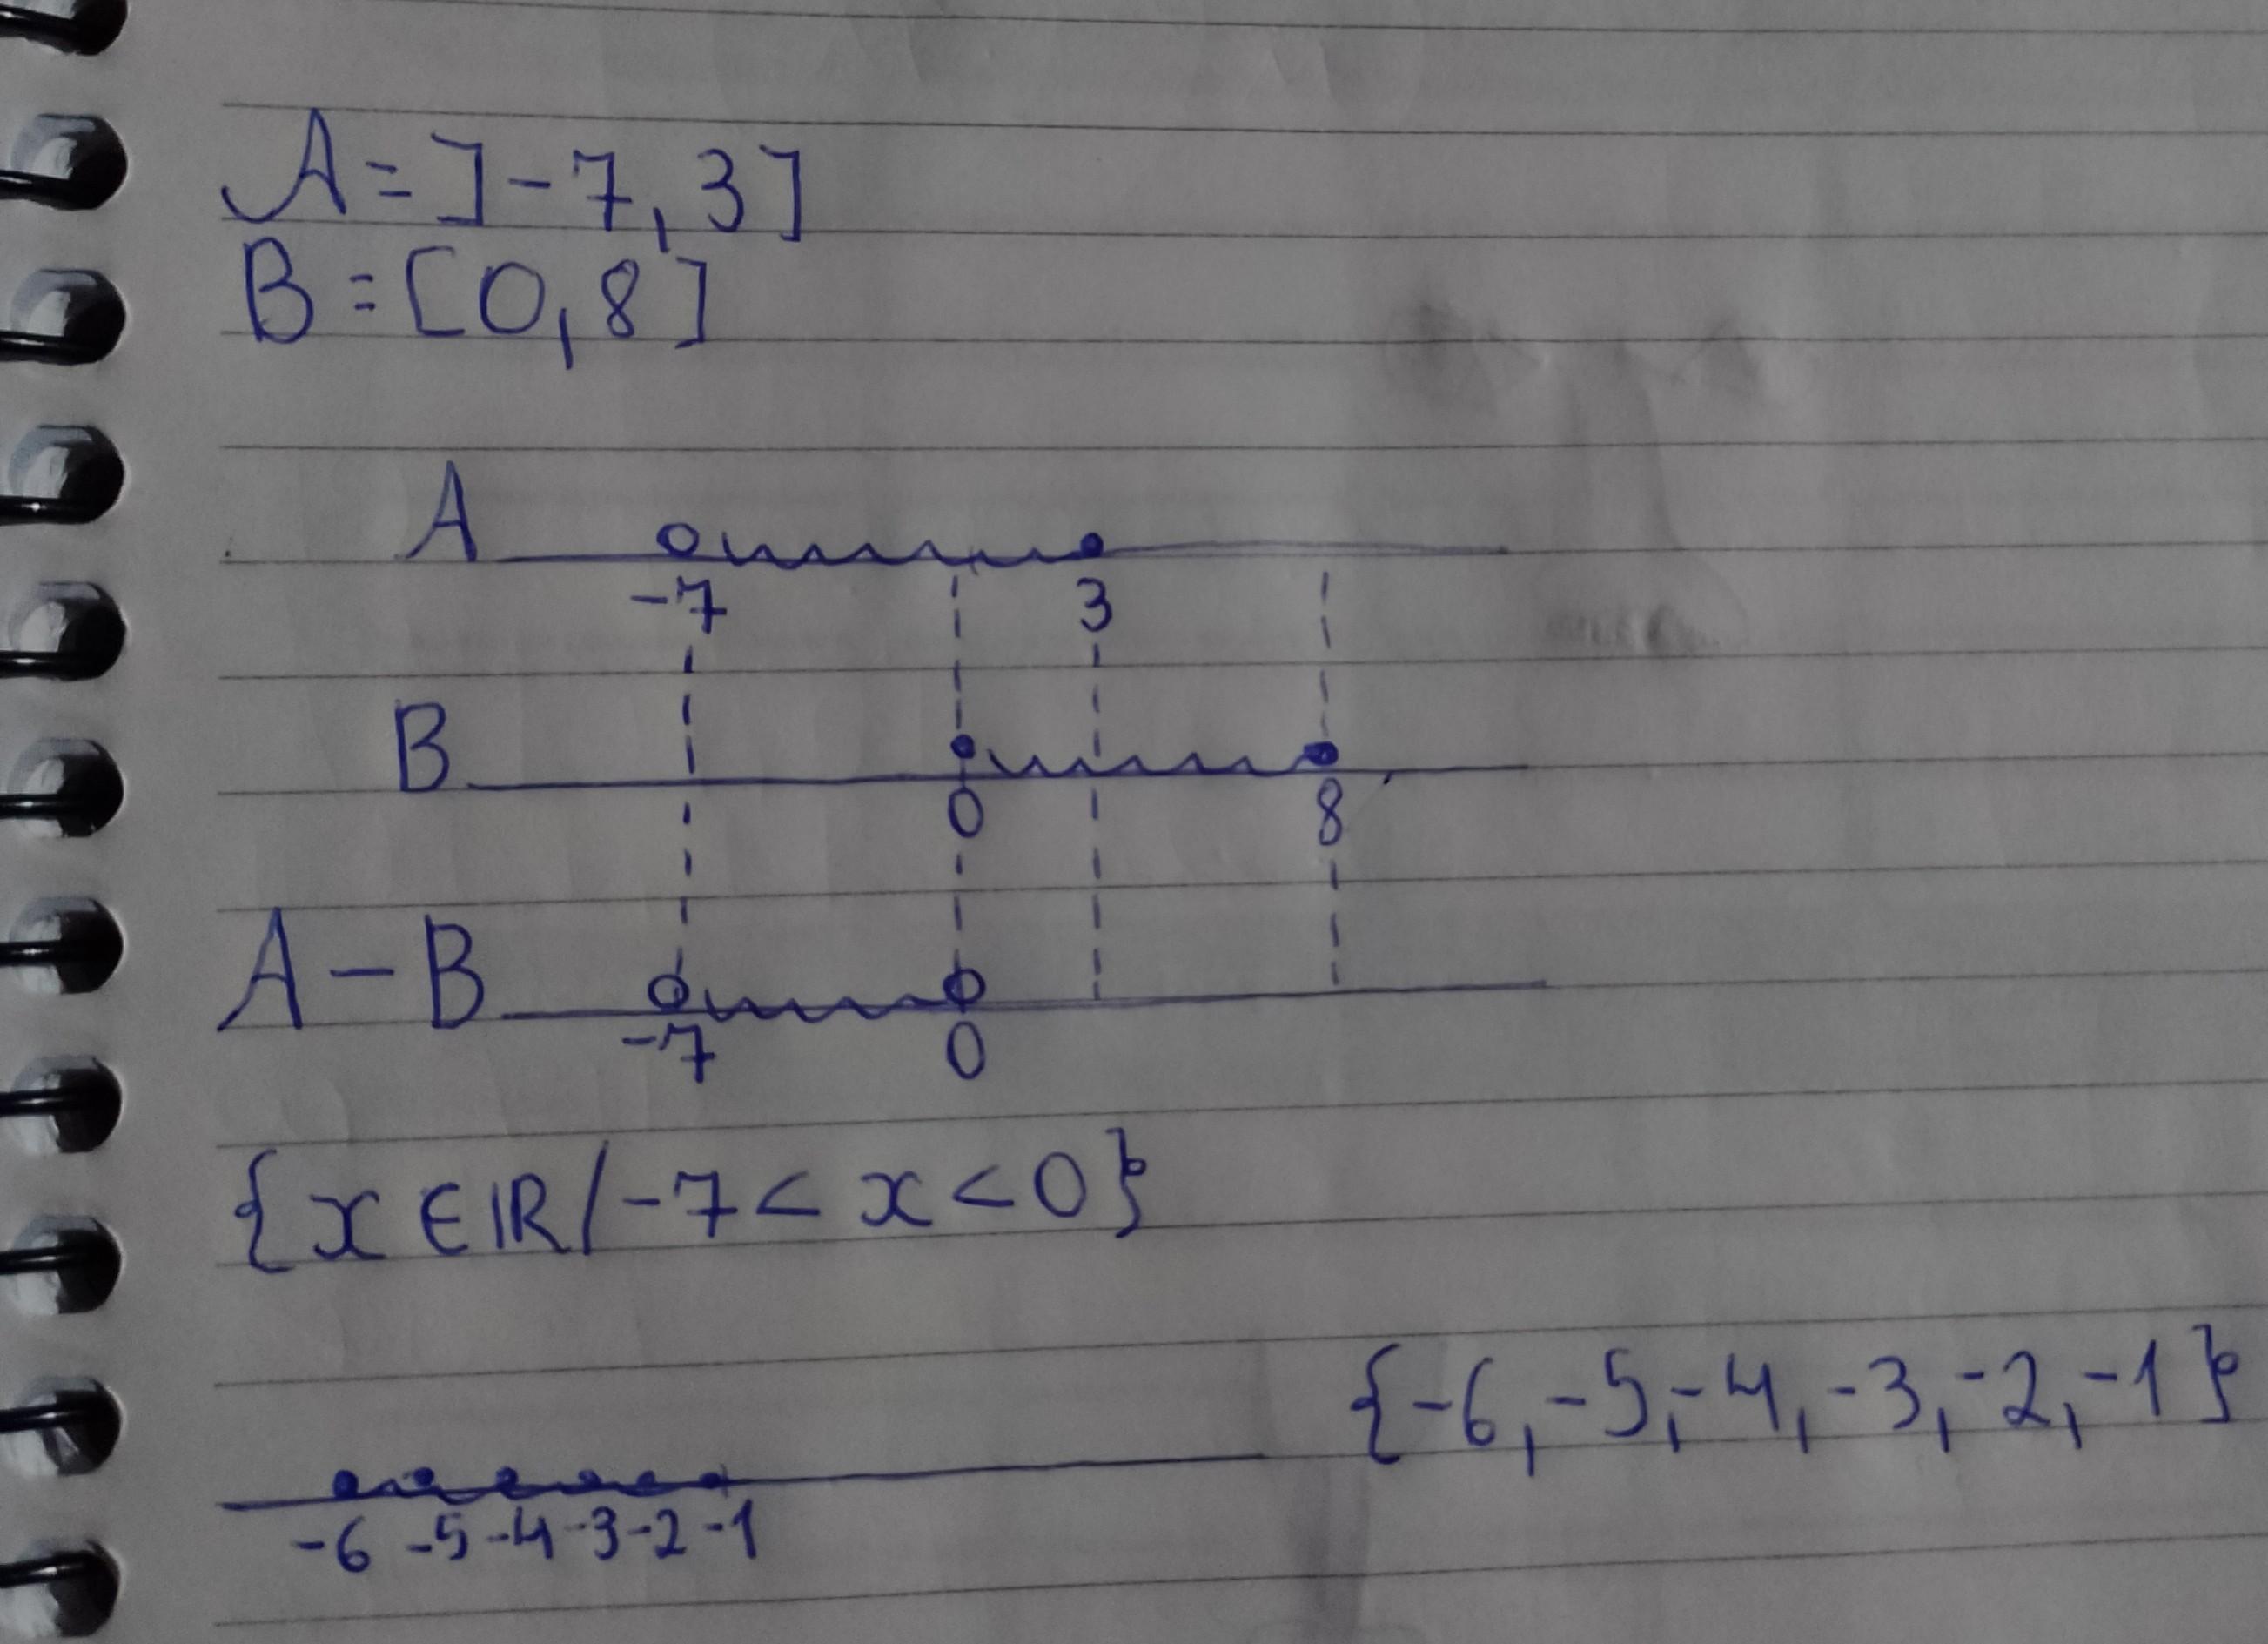 A = ]-7, 3]
B = [0, 8]
A
-7 3
B
0 8
A - B
-7 0
{x ∈ IR / -7 < x < 0}
{-6, -5, -4, -3, -2, -1}
-6 -5 -4 -3 -2 -1